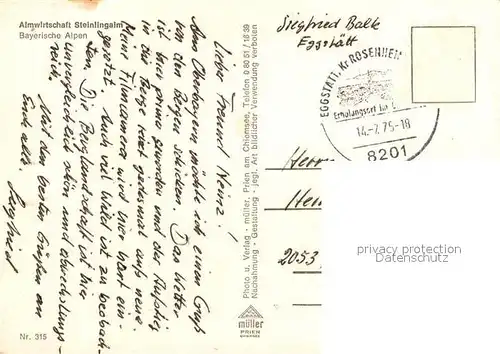 Almwirtschaft Steinlingalm
Bayerische Alpen
Lieber Freund Heinz!
Aus Oberbayern möchte ich einen Gruß
von den Bergen schicken. Das Wetter
ist hier prima geworden und der Aufstieg
in die Berge reizt jedesmal aufs neue.
Meine Filmcamera wird hier hart ein-
gesetzt. Auch viel Wild ist zu beobach-
ten. Die Berglandschaft ist hier
unvergleichlich schön und abwechslungs-
reich.
Mit den besten Grüßen an
Euch alle. Siegfried
Nr. 315
Photo u. Verlag - müller, Prien am Chiemsee, Telefon 0 80 51 / 16 39
Nachahmung - Gestaltung - jegl. Art bildlicher Verwendung verboten
müller
PRIEN
Siegfried Balk
Eggstätt
EGGSTÄTT, Kr ROSENHEIM
Erholungsort im
14.-7.75-18
8201
Herrn
2053
privacy protection
Datenschutz